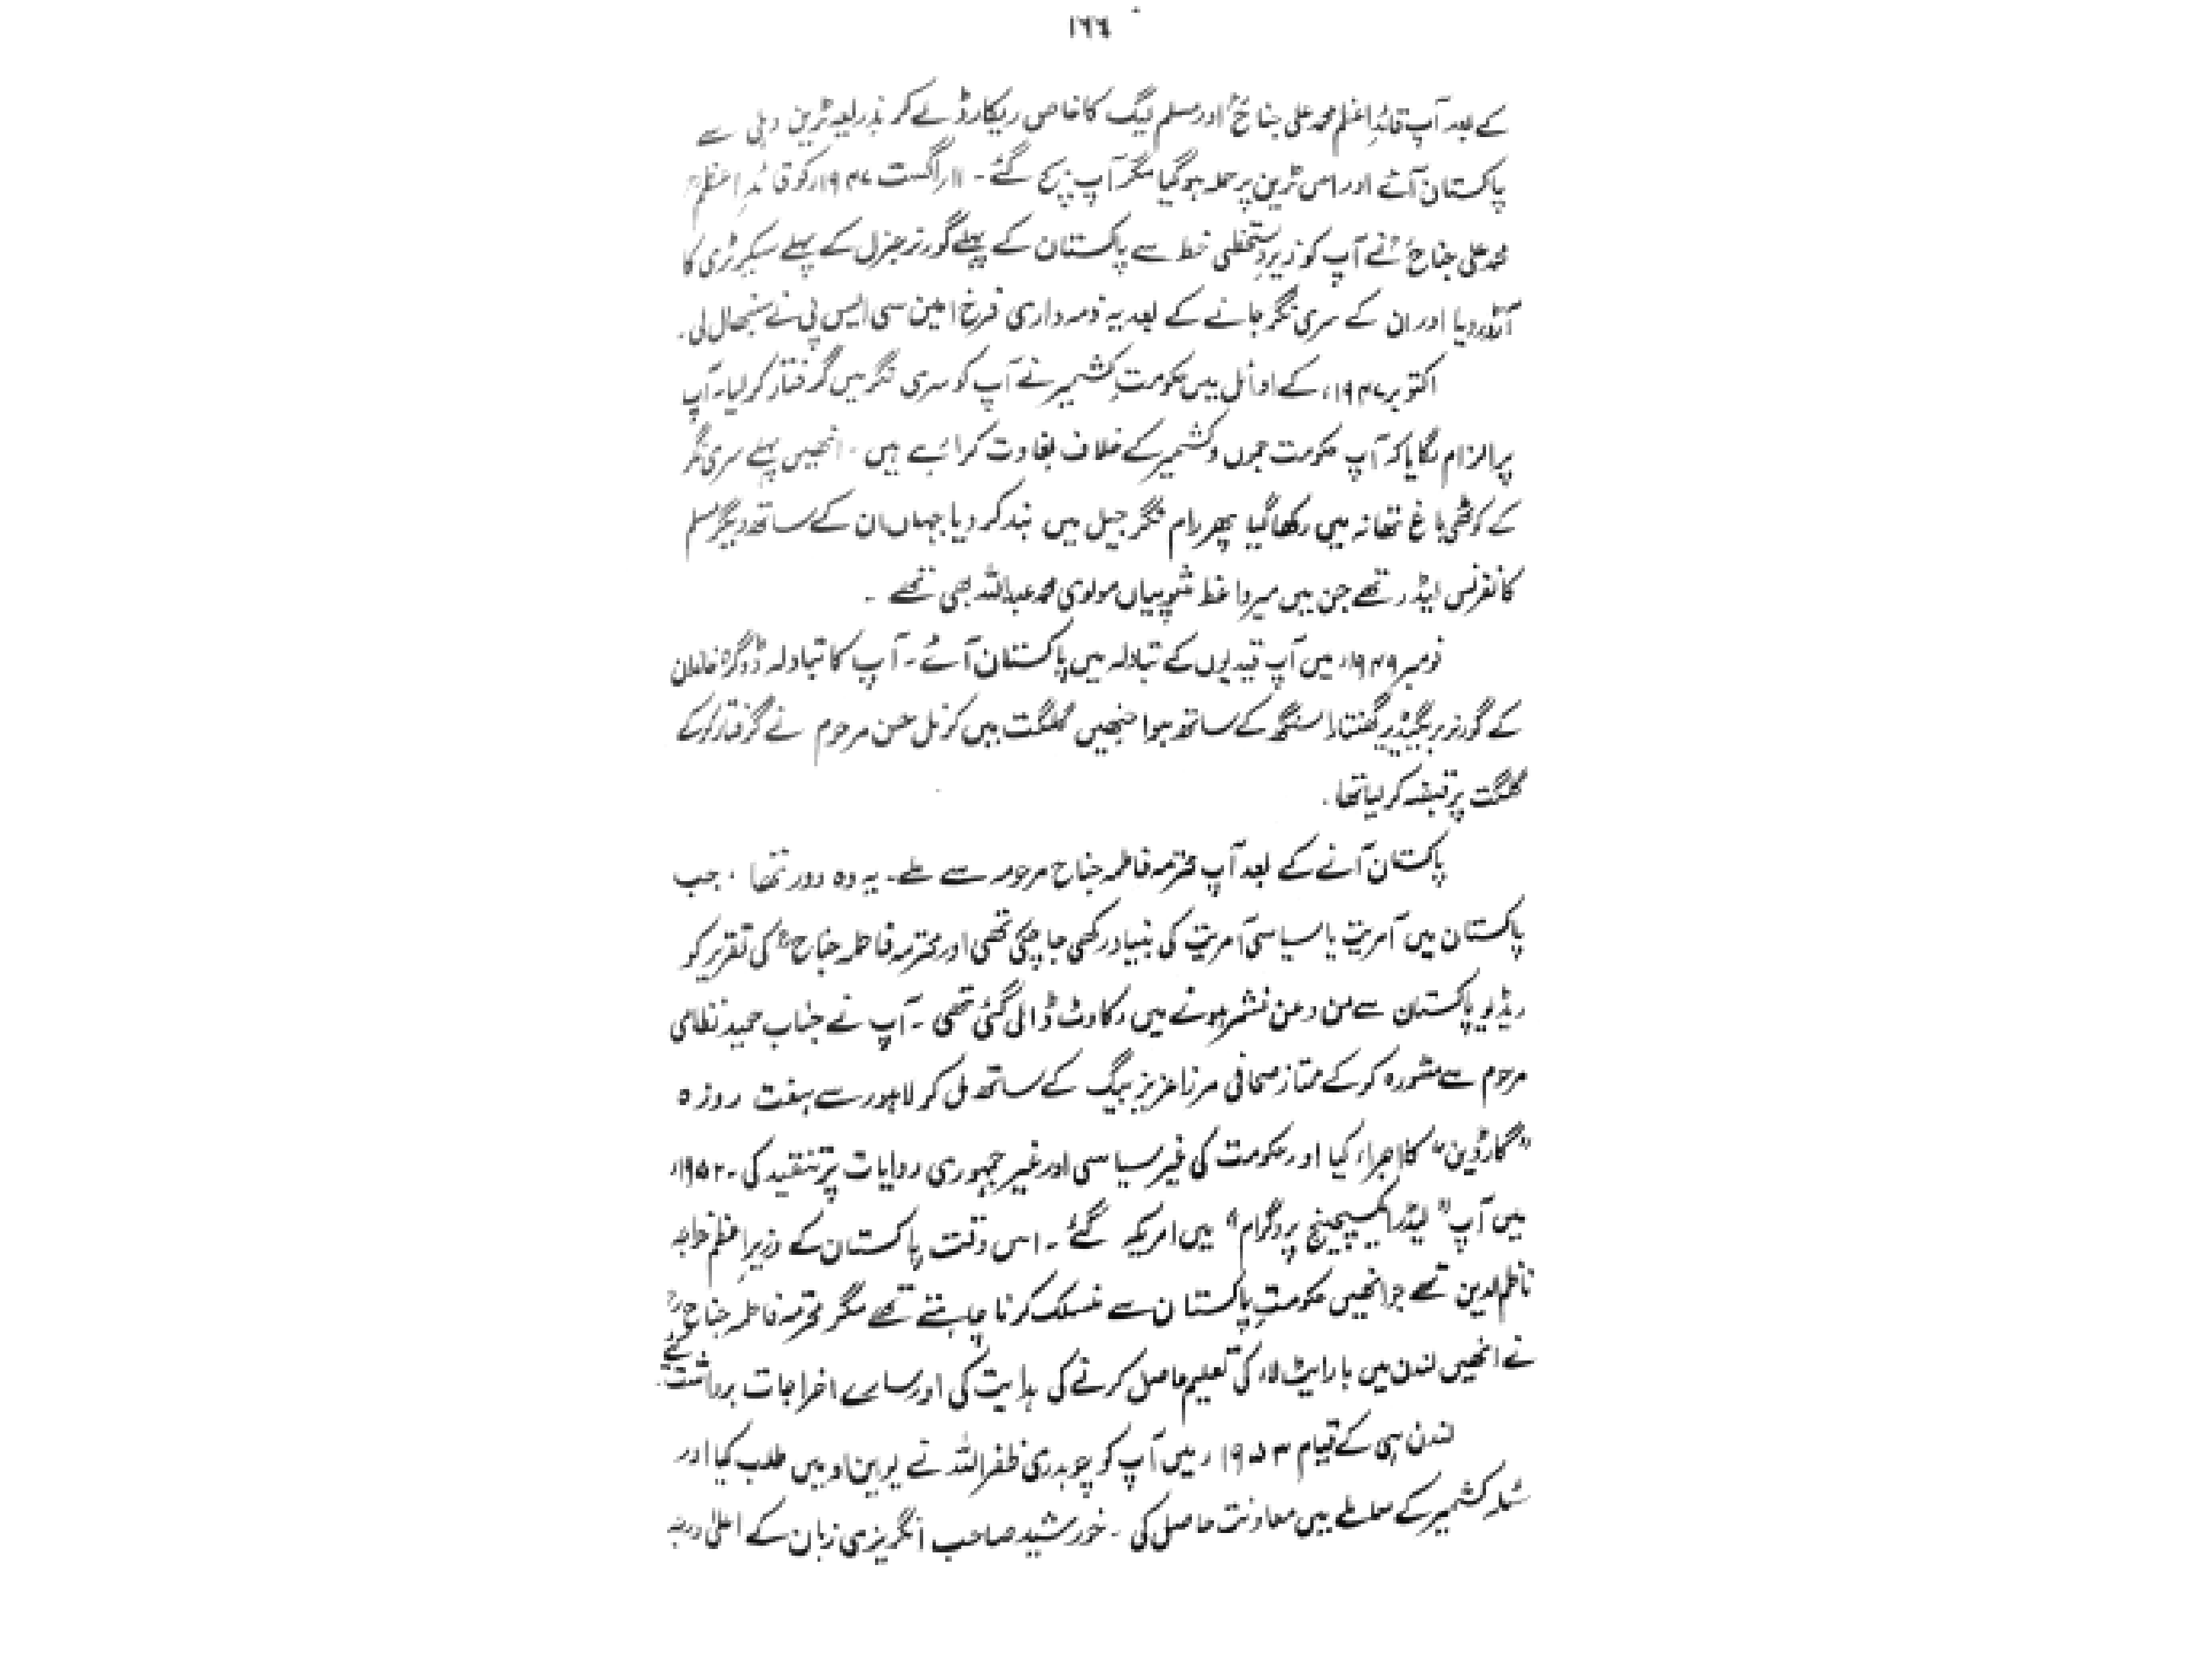 ۱۶۶
کے بعد آپ قائدِ اعظم محمد علی جناحؒ اور مسلم لیگ کا خاص ریکارڈ لے کر بذریعہ ٹرین دہلی سے
پاکستان آئے اور اس ٹرین پر حملہ ہو گیا مگر آپ بچ گئے - ۱۱ر اگست ۱۹۴۷ء کو قائدِ اعظمؒ
محمد علی جناحؒ نے آپ کو زیر دستخطی خط سے پاکستان کے پہلے گورنر جنرل کے پہلے سیکرٹری کا
آرڈر دیا اور ان کے سری نگر جانے کے بعد یہ ذمہ داری فرخ امین سی ایس پی نے سنبھال لی -
اکتوبر ۱۹۴۷ء کے اوائل میں حکومتِ کشمیر نے آپ کو سری نگر میں گرفتار کر لیا - آپ
پر الزام لگایا کہ آپ حکومت جموں و کشمیر کے خلاف بغاوت کرا رہے ہیں - انھیں پہلے سری نگر
کے کوٹھی باغ تھانہ میں رکھا گیا پھر رام نگر جیل میں بند کر دیا جہاں ان کے ساتھ دیگر مسلم
کانفرنس لیڈر تھے جن میں میر واعظ شوپیاں مولوی محمد عبداللہ بھی تھے -
نومبر ۱۹۴۹ء میں آپ قیدیوں کے تبادلہ میں پاکستان آئے - آپ کا تبادلہ ڈوگرہ خاندان
کے گورنر بریگیڈیر گھنسارا سنگھ کے ساتھ ہوا جنھیں گلگت میں کرنل حسن مرحوم نے گرفتار کر کے
گلگت پر قبضہ کر لیا تھا -
پاکستان آنے کے بعد آپ محترمہ فاطمہ جناح مرحومہ سے ملے - یہ وہ دور تھا ، جب
پاکستان میں آمریت یا سیاسی آمریت کی بنیاد رکھی جا چکی تھی اور محترمہ فاطمہ جناحؒ کی تقریر کو
ریڈیو پاکستان سے من و عن نشر ہونے میں رکاوٹ ڈالی گئی تھی - آپ نے جناب حمید نظامی
مرحوم سے مشورہ کر کے ممتاز صحافی مرزا عزیز بیگ کے ساتھ مل کر لاہور سے ہفت روزہ
"گارڈین" کا اجراء کیا اور حکومت کی غیر سیاسی اور غیر جمہوری روایات پر تنقید کی - ۱۹۵۲ء
میں آپ "لیڈر ایکسچینج پروگرام" میں امریکہ گئے - اس وقت پاکستان کے وزیرِ اعظم خواجہ
ناظم الدین تھے جو انھیں حکومتِ پاکستان سے منسلک کرنا چاہتے تھے مگر محترمہ فاطمہ جناحؒ
نے انھیں لندن میں بار ایٹ لاء کی تعلیم حاصل کرنے کی ہدایت کی اور سارے اخراجات برداشت کئے -
لندن ہی کے قیام ۱۹۵۳ء میں آپ کو چوہدری ظفر اللہ نے یو این او میں طلب کیا اور
مسئلہ کشمیر کے معاملے میں معاونت حاصل کی - خورشید صاحب انگریزی زبان کے اعلیٰ درجہ